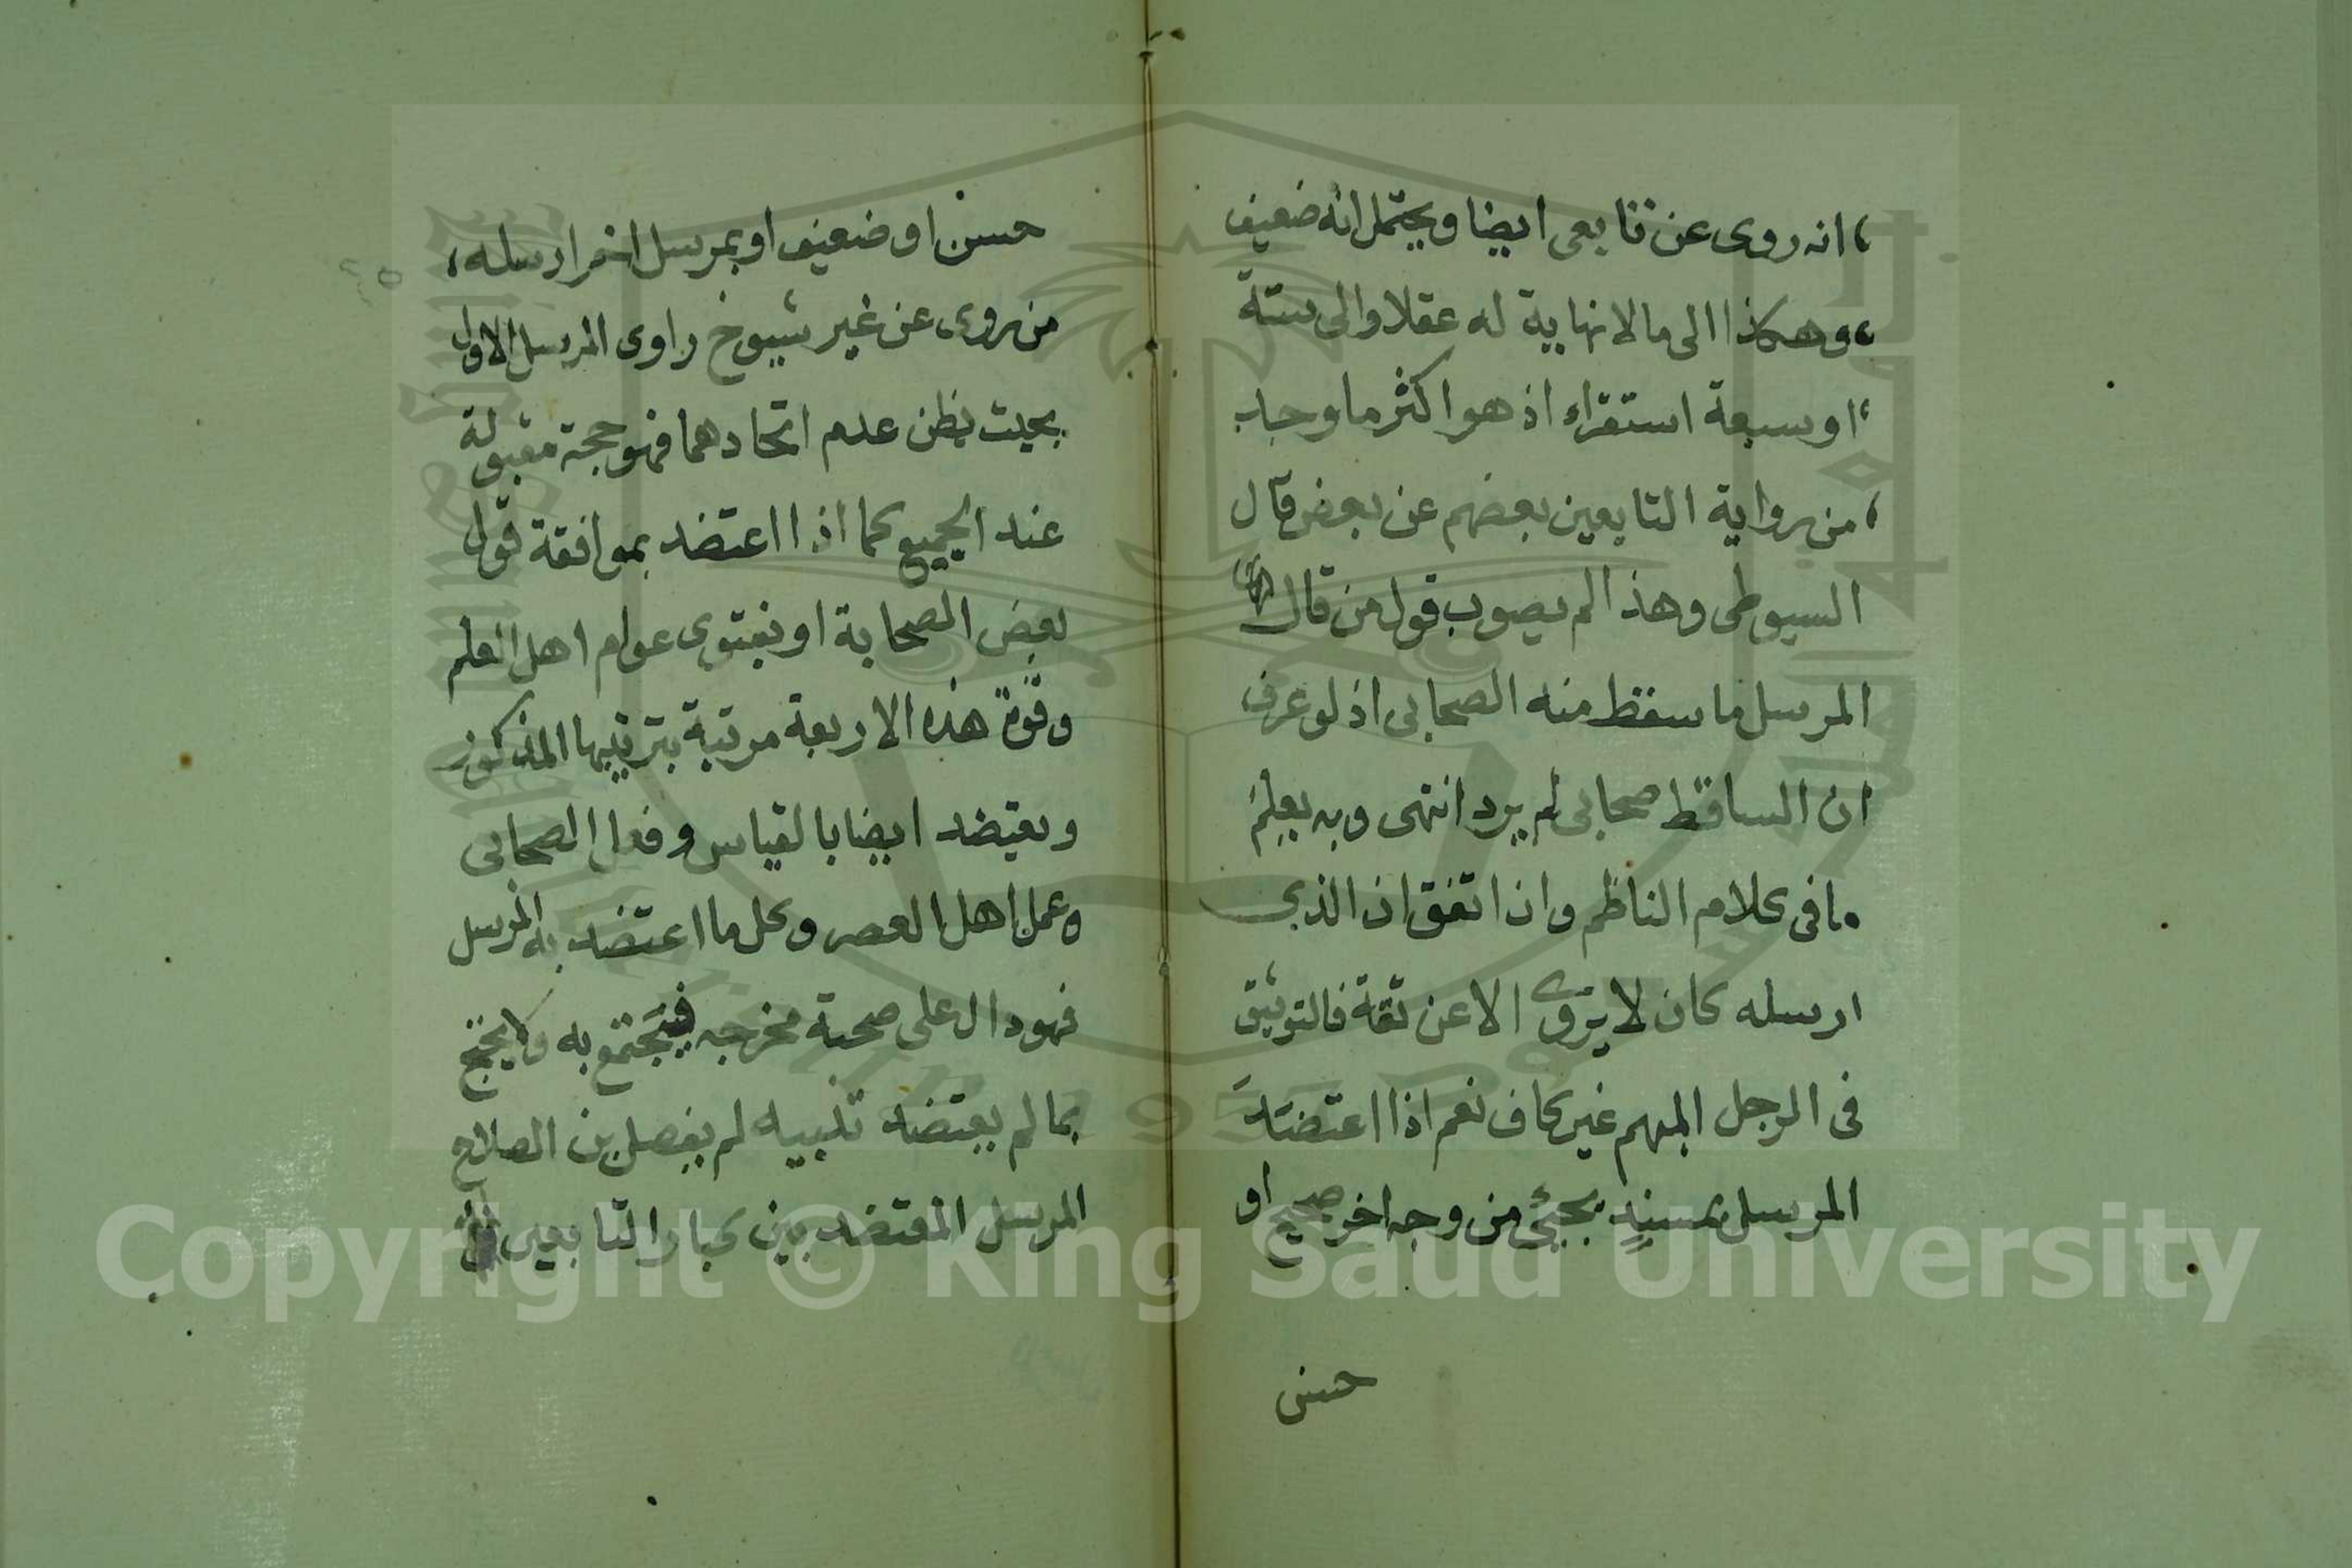 انه روى عن تابعى ايضا ويحتمل انه ضعيف
وهكذا الى ما لا نهاية له عقلا والى ستة
او سبعة استقراء اذ هو اكثر ما وجد
من رواية التابعين بعضهم عن بعض قال
السيوطى وهذا لم يصوب قول من قال
المرسل ما سقط منه الصحابى اذ لو عرف
ان الساقط صحابى لم يرد انتهى وبه يعلم
ما فى كلام الناظم وان اتفق ان الذى
ارسله كان لا يروى الا عن ثقة فالتوثيق
فى الرجل المبهم غير كاف نعم اذا اعتضد
المرسل بمسند يجىء من وجه اخر صحيح او
حسن
حسن او ضعيف او بمرسل اخر ارسله
من روى عن غير شيوخ راوى المرسل الاول
بحيث يظن عدم اتحادهما فهو حجة مقبولة
عند الجميع كما اذا اعتضد بموافقة قول
بعض الصحابة او بفتوى عوام اهل العلم
وقوة هذه الاربعة مرتبة بترتيبها المذكور
ويعتضد ايضا بالقياس وفعل الصحابى
وعمل اهل العصر وكل ما اعتضد به المرسل
فهو دال على صحة مخرجه فيحتج به ولا يحتج
بما لم يعتضد تنبيه لم يفصل بن الصلاح
المرسل المعتضد بين كبار التابعين
Copyright © King Saud University